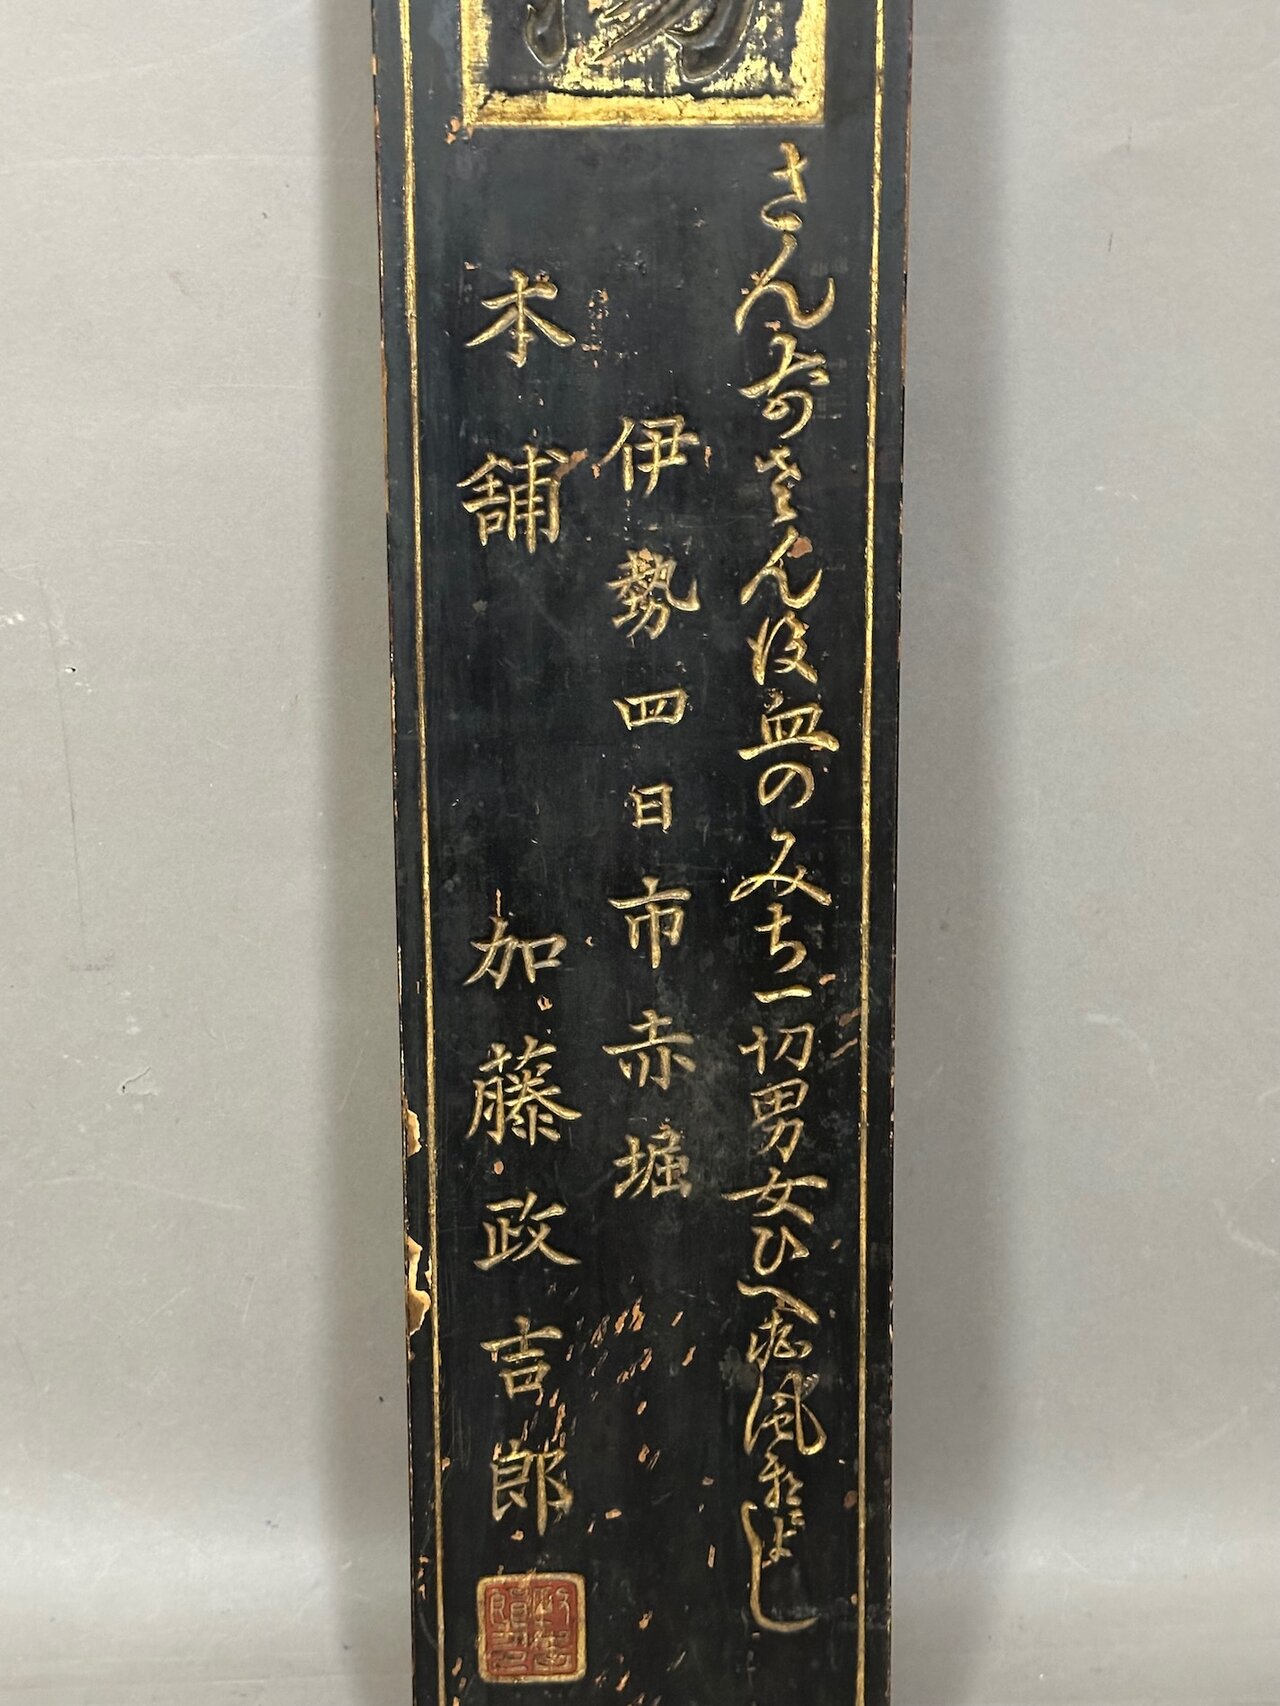 湯
さん前さん後血のみち一切男女ひへ志风によし
伊勢四日市赤堀
本舗 加藤政吉郎